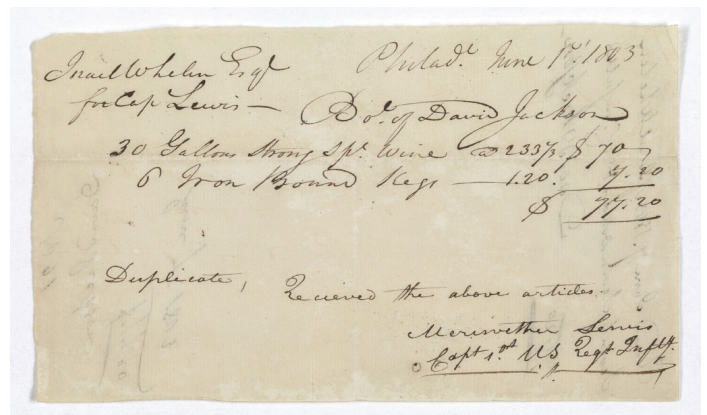 Israel Whelen Esqr Philada. June 1st. 1803
for Cap Lewis —
Bot. of David Jackson
30 Gallons Strong Spt. Wine @ 233⅓ $ 70
6 Iron Bound Kegs — 1.20. 7.20
$ 77.20
Duplicate, Recieved the above articles
Meriwether Lewis
Capt 1st. US Regt Infty.